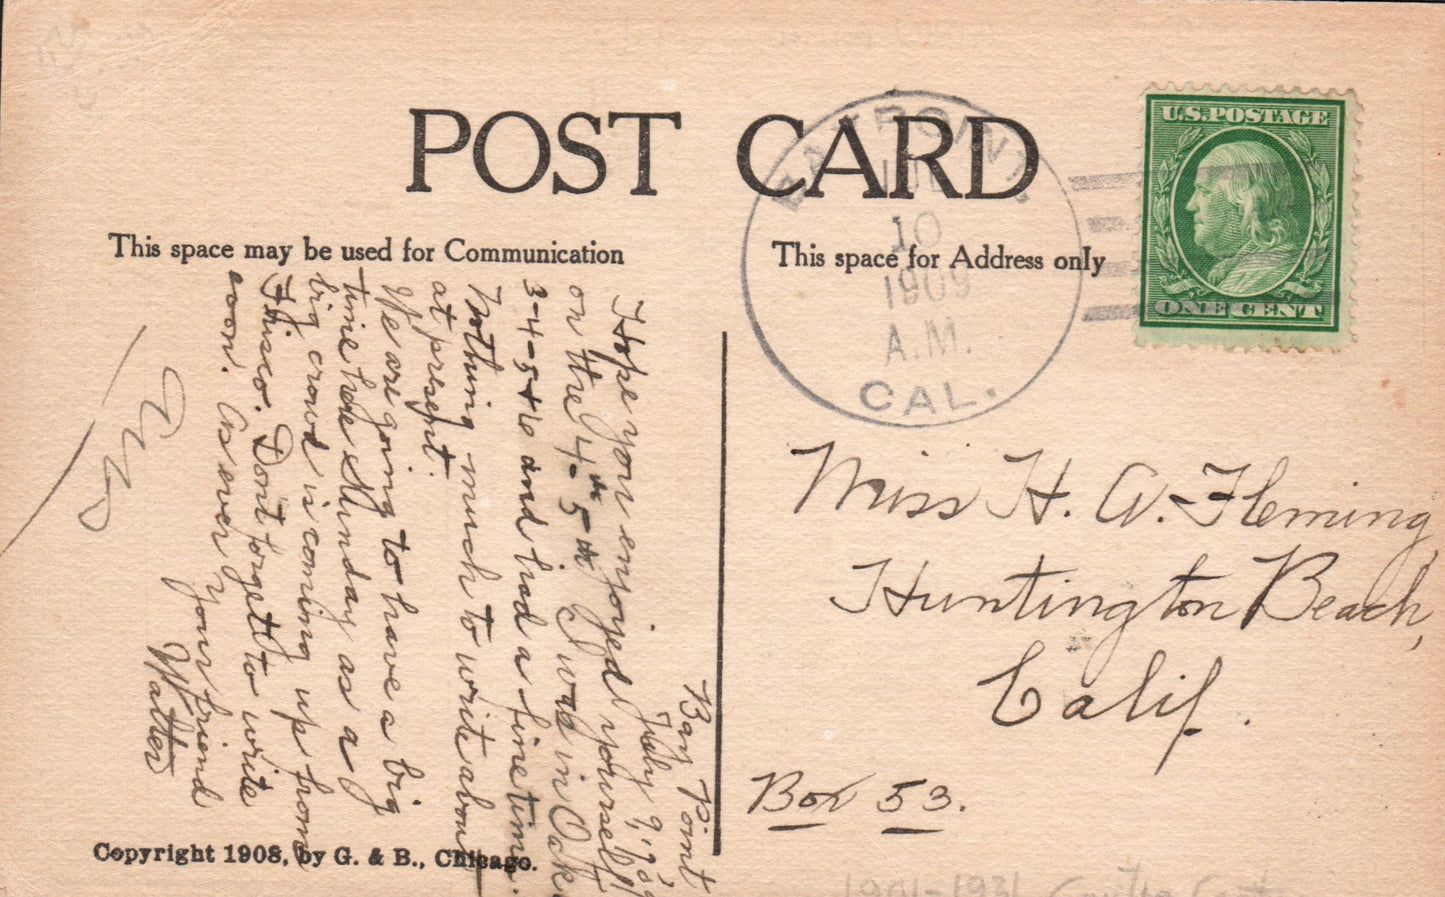 POST CARD
U.S. POSTAGE
ONE CENT
BAY POINT.
JUL
10
1909
A.M.
CAL.
This space may be used for Communication
This space for Address only
Miss H. A. Fleming,
Huntington Beach,
Calif.
Box 53.
Bay Point
July 9, '09
I Hope you enjoyed yourself
on the 4th 5th I was in Oak.
3-4-5+6 and had a fine time.
Nothing much to write about
at present.
We are going to have a big
time here Sunday as a
big crowd is coming up from
Frisco. Don't forget to write
soon. As ever
your friend
Walter
Copyright 1908, by G. & B., Chicago.
1901-1931